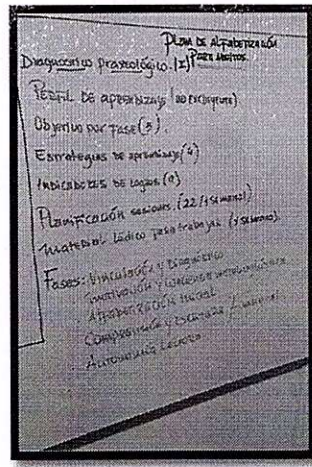 PLAN DE ALFABETIZACIÓN
PARA ADULTOS.
Diagnóstico praxeológico. (I)
PERFIL DE aprendizaje
Objetivo por fase (3).
Estrategias de aprendizaje (4)
INDICADORES DE logros (9)
Planificación sesiones. (22/1 semanal)
material lúdico para trabajar
Fases: Vinculación y Diagnóstico
motivación y
Alfabetización inicial
Comprensión y
Autonomía Lectora